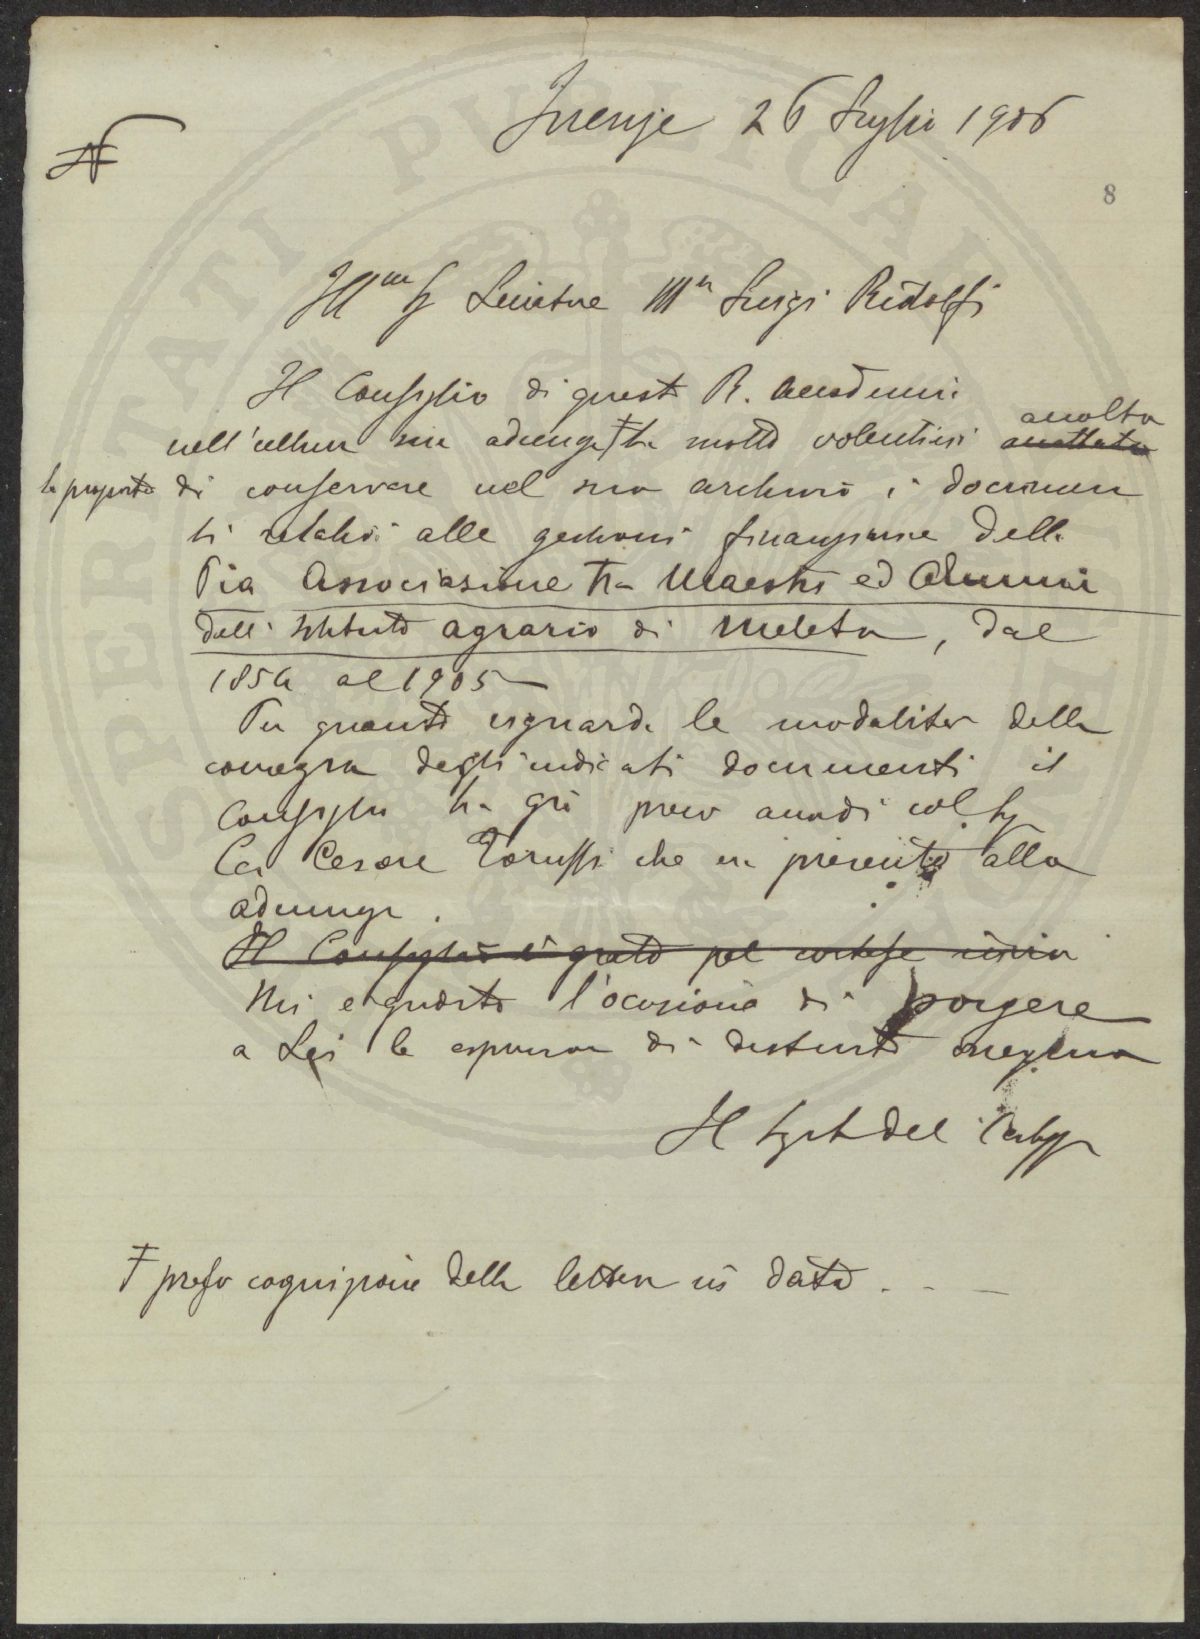 Firenze 26 Luglio 1906
8
Ill.mo Sr Senatore M.se Luigi Ridolfi
Il Consiglio di questa R. Accademia
accolta
nell'ultima sua adunza ha molto volentieri accettata
la proposta di conservare nel suo archivio i documen
ti relativi alle gestioni finanziarie della
Pia Associazione tra Maestri ed Alunni
dell'Istituto agrario di Meleto, dal
1854 al 1905
Per quanto riguarda le modalità della
consegna degli indicati documenti il
Consiglio ha già preso accordi col Sr
Cesare che era presente alla
adunza.
Il Consiglio è grato pel cortese invio
Mi è grata l'occasione di porgere
a Lei le espressioni di distinto ossequio
Il Segret del
preso cognizione della lettera in data . . —